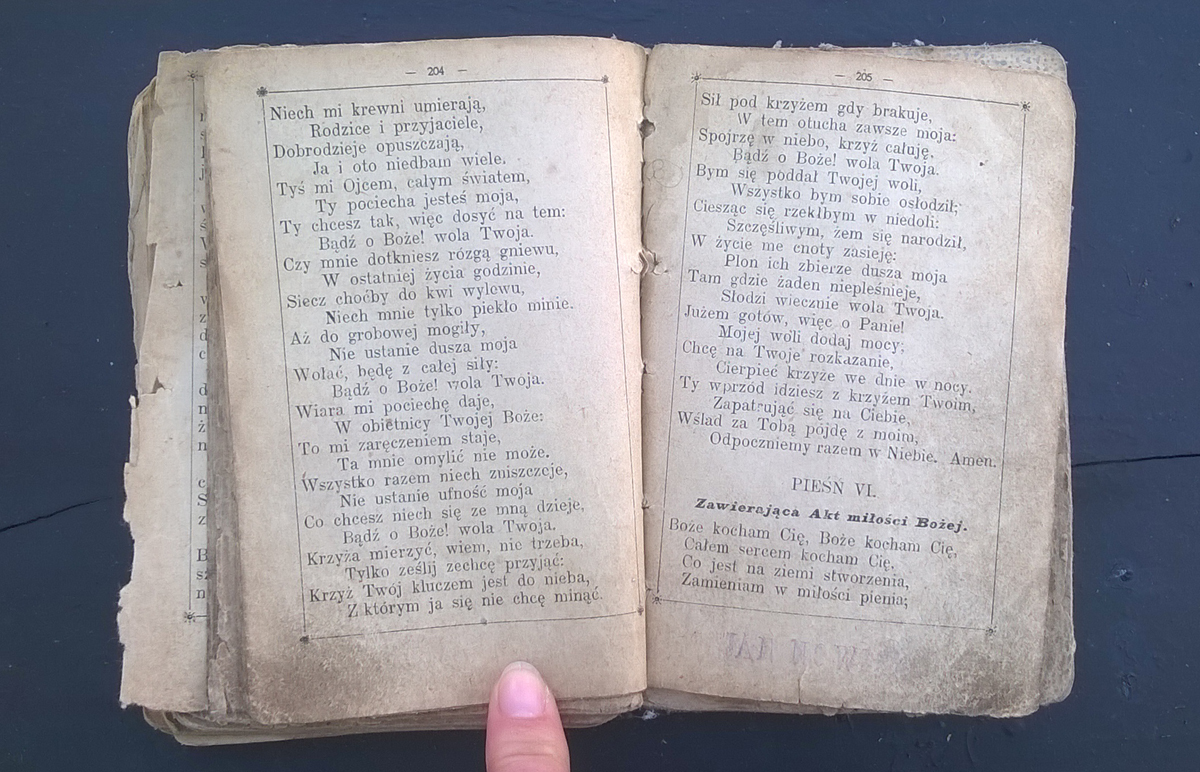 — 204 —
Niech mi krewni umierają,
Rodzice i przyjaciele,
Dobrodzieje opuszczają,
Ja i oto niedbam wiele.
Tyś mi Ojcem, całym światem,
Ty pociecha jesteś moja,
Ty chcesz tak, więc dosyć na tem:
Bądź o Boże! wola Twoja.
Czy mnie dotkniesz rózgą gniewu,
W ostatniej życia godzinie,
Siecz choćby do kwi wylewu,
Niech mnie tylko piekło minie.
Aż do grobowej mogiły,
Nie ustanie dusza moja
Wołać, będę z całej siły:
Bądź o Boże! wola Twoja.
Wiara mi pociechę daje,
W obietnicy Twojej Boże:
To mi zaręczeniem staje,
Ta mnie omylić nie może.
Wszystko razem niech zniszczeje,
Nie ustanie ufność moja
Co chcesz niech się ze mną dzieje,
Bądź o Boże! wola Twoja.
Krzyża mierzyć, wiem, nie trzeba,
Tylko ześlij zechcę przyjąć:
Krzyż Twój kluczem jest do nieba,
Z którym ja się nie chcę minąć.
— 205 —
Sił pod krzyżem gdy brakuje,
W tem otucha zawsze moja:
Spojrzę w niebo, krzyż całuję,
Bądź o Boże! wola Twoja.
Bym się poddał Twojej woli,
Wszystko bym sobie osłodził;
Ciesząc się rzekłbym w niedoli:
Szczęśliwym, żem się narodził,
W życie me cnoty zasieję:
Plon ich zbierze dusza moja
Tam gdzie żaden niepleśnieje,
Słodzi wiecznie wola Twoja.
Jużem gotów, więc o Panie!
Mojej woli dodaj mocy;
Chcę na Twoje rozkazanie,
Cierpieć krzyże we dnie w nocy.
Ty wprzód idziesz z krzyżem Twoim,
Zapatrując się na Ciebie,
Wślad za Tobą pójdę z moim,
Odpoczniemy razem w Niebie. Amen.
PIEŚN VI.
Zawierająca Akt miłości Bożej.
Boże kocham Cię, Boże kocham Cię,
Całem sercem kocham Cię,
Co jest na ziemi stworzenia,
Zamieniam w miłości pienia;